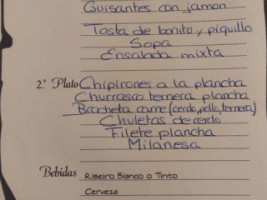 Guisantes con jamon
Tosta de bonito y piquillo
Sopa
Ensalada mixta
2.º Plato Chipirones a la plancha
Churrasco ternera plancha
Brocheta carne (cerdo, pollo, ternera)
Chuletas de cerdo
Filete plancha
Milanesa
Bebidas Ribeiro Blanco o Tinto
Cerveza